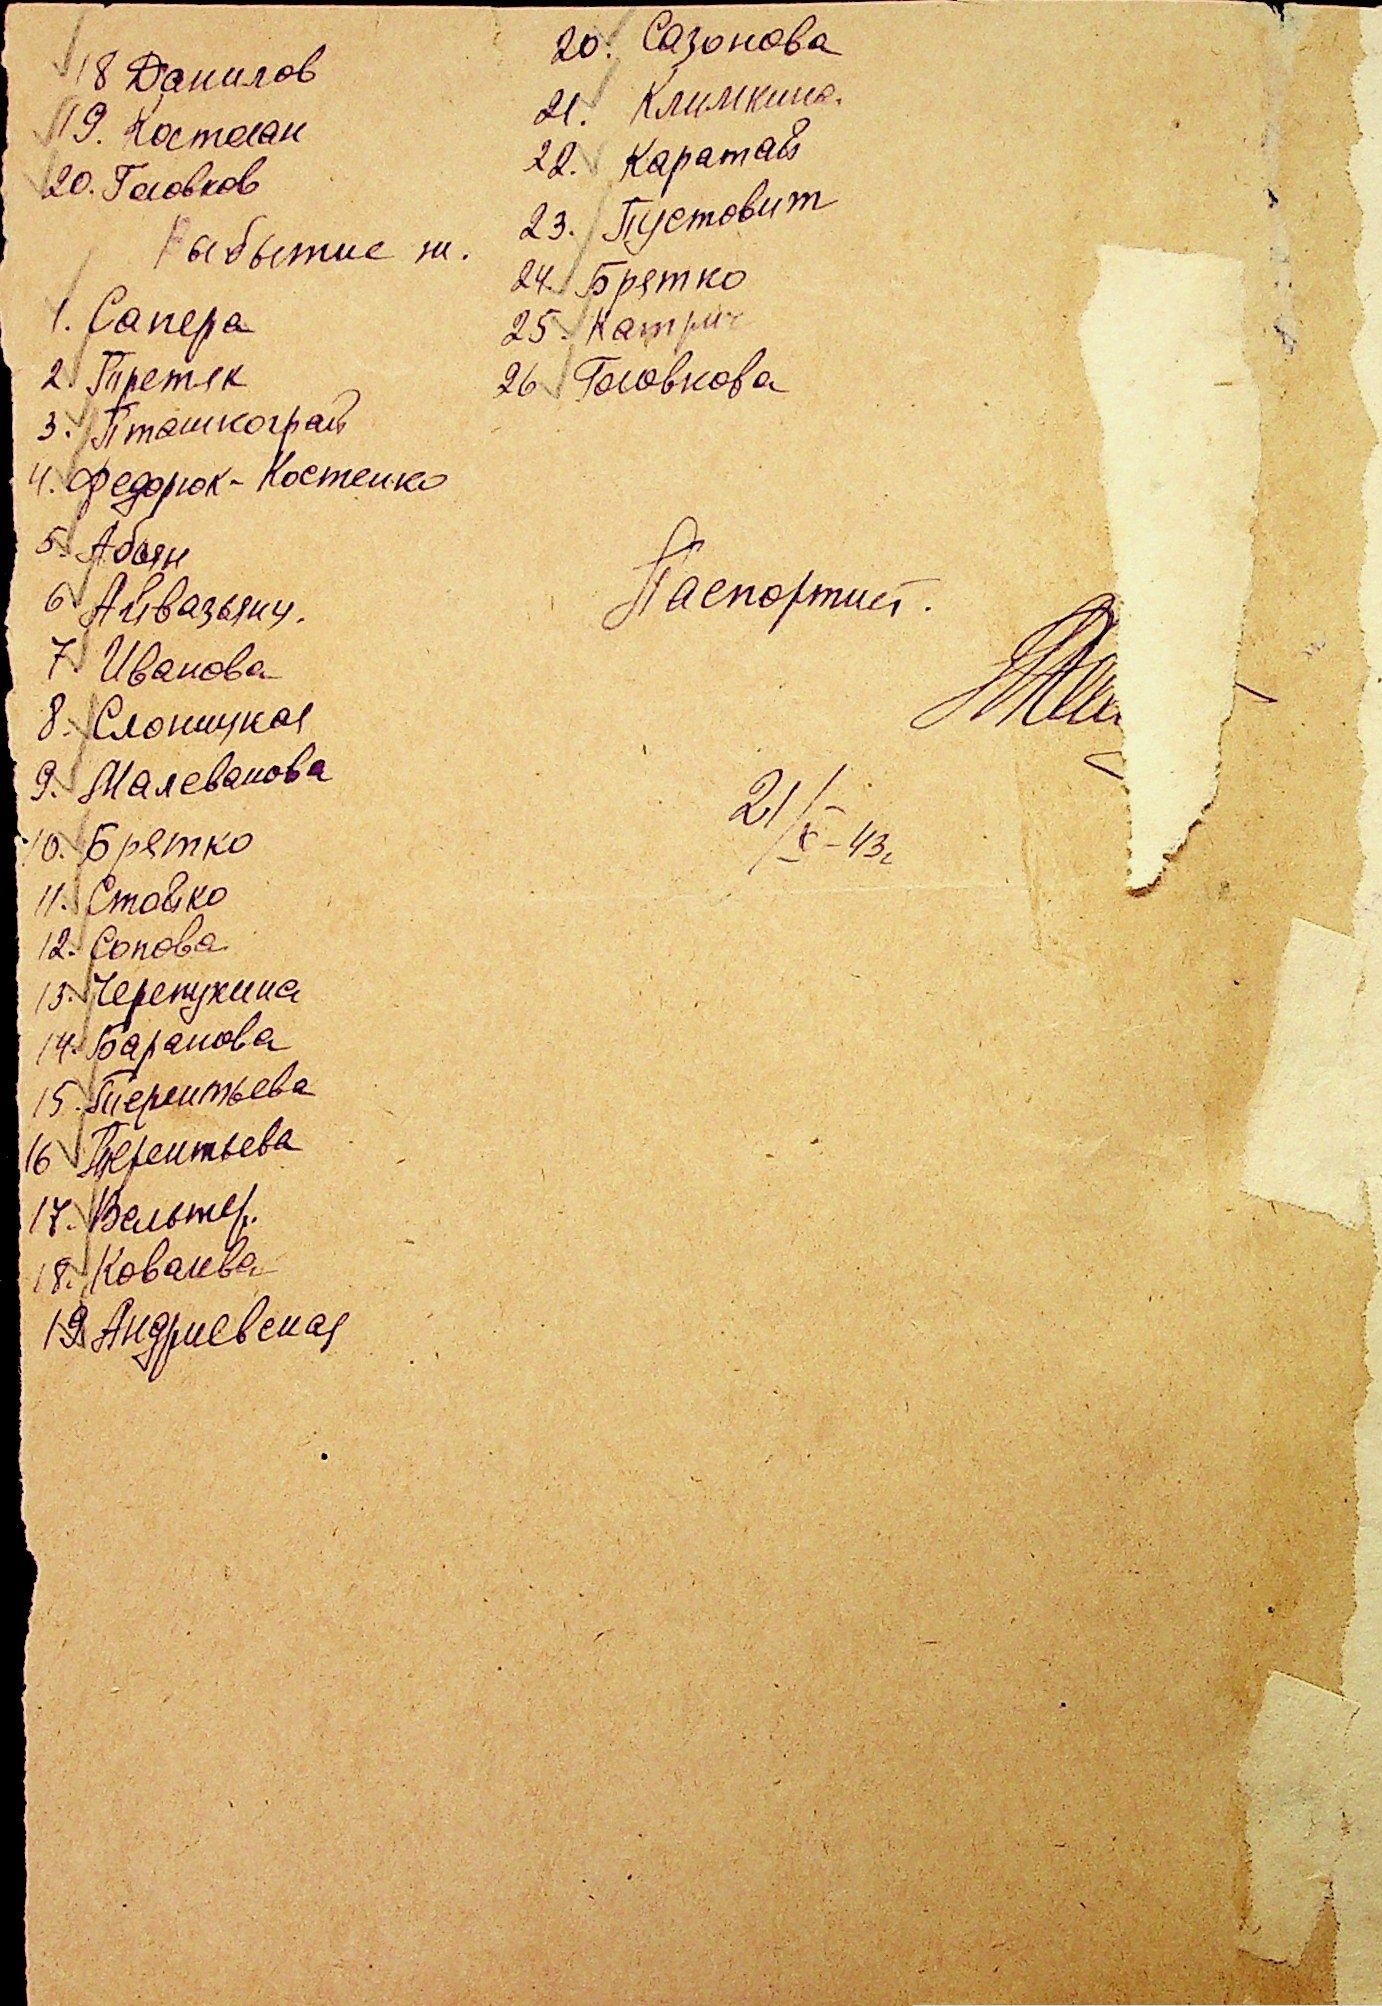 18 Данилов
19. Костолан
20. Головков
Выбытие ж.
1. Сапера
2 Третяк
3. Пташкограй
4. Федорюк-Костенко
5. Абоян
6 Айвазьянц.
7 Иванова
8. Слоницкая
9. Малеванова
10. Брятко
11. Стойко
12. Сопова
13. Черепухина
14. Баранова
15. Терентьева
16 Терентьева
17. Вальтер.
18. Ковалева
19 Андриевская
20. Сазонова
21. Климкина.
22. Каратай
23. Пустовит
24. Брятко
25. Катрич
26 Головкова
Паспортист.
21/X-43г